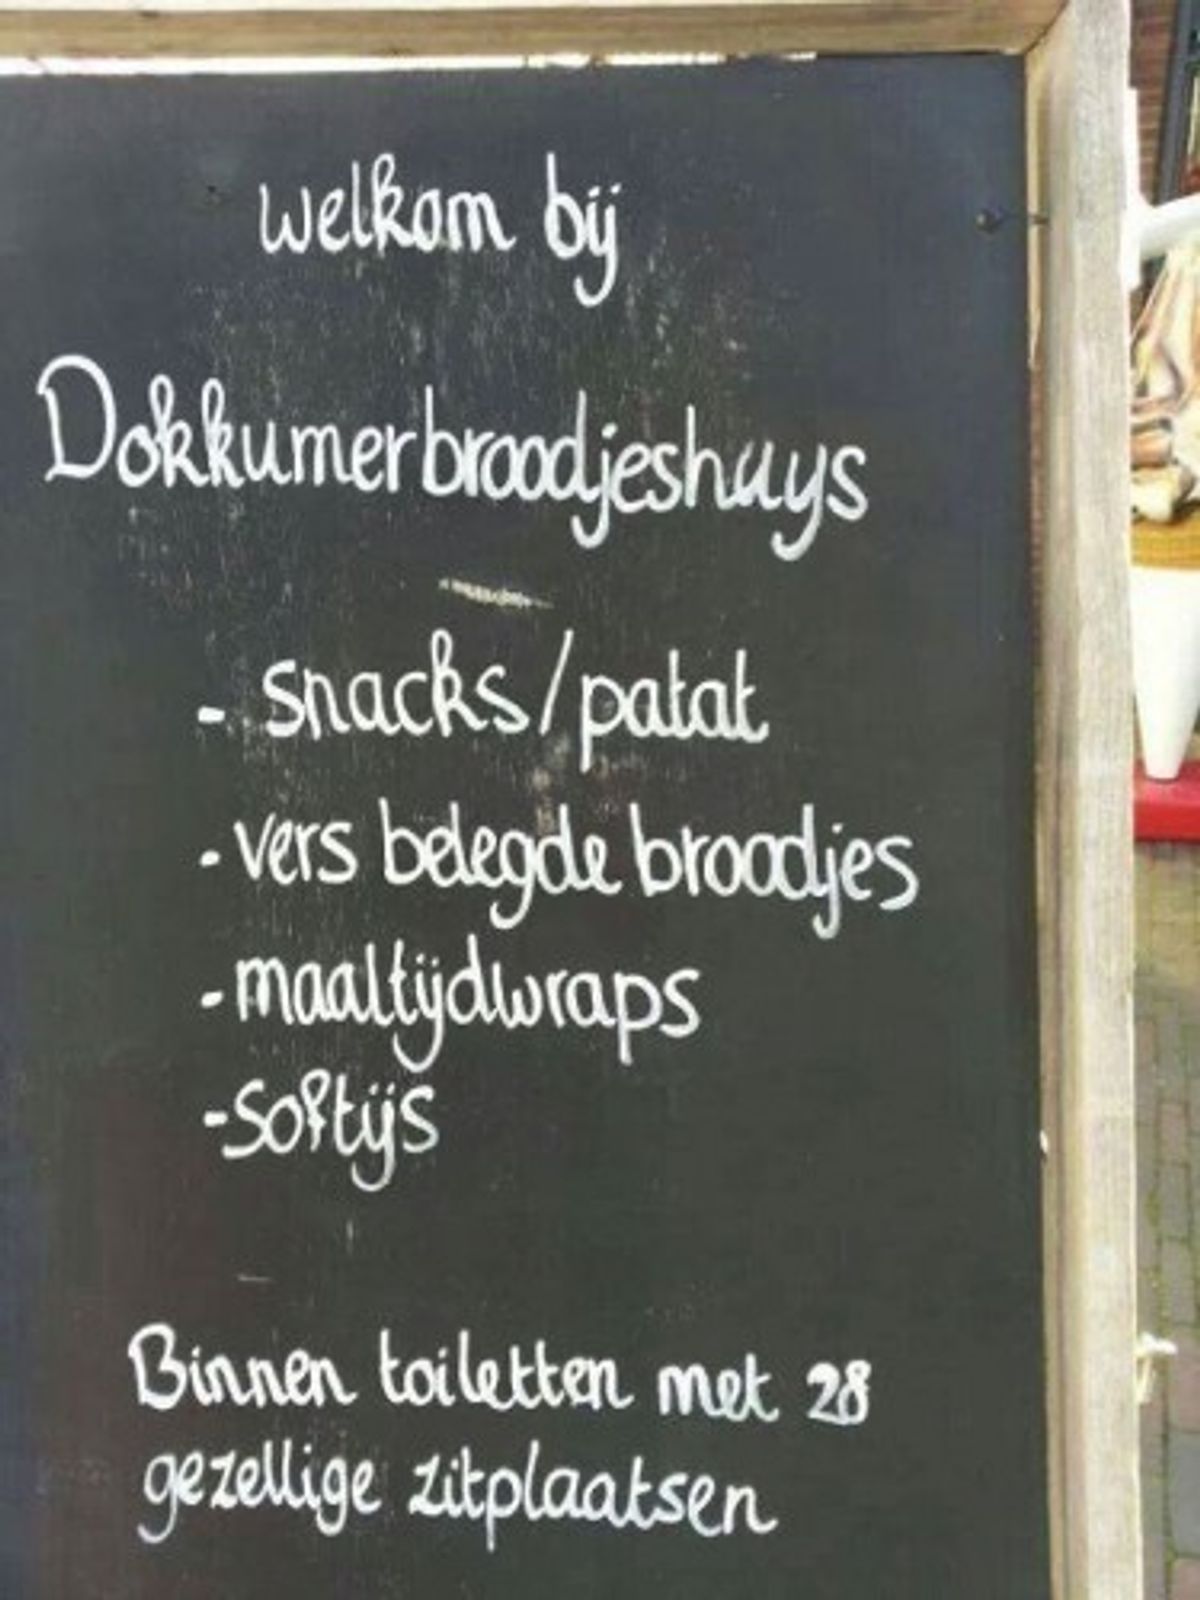 welkom bij
Dokkumerbroodjeshuys
- snacks/patat
- vers belegde broodjes
- maaltijdwraps
- softijs
Binnen toiletten met 28
gezellige zitplaatsen